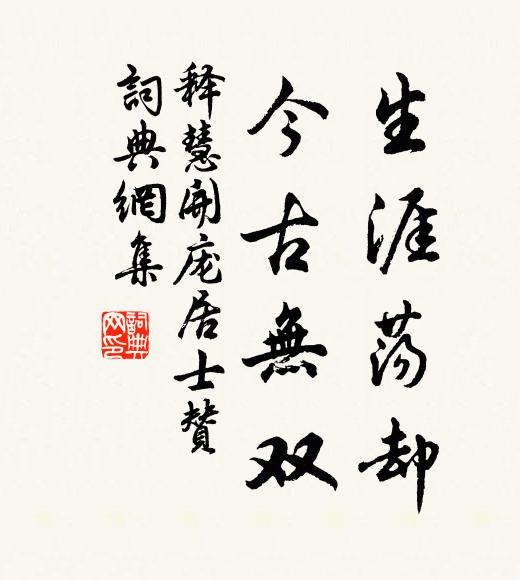 生涯荡却
今古無双
释慧開庞居士贊
詞典網集
詞典
网印